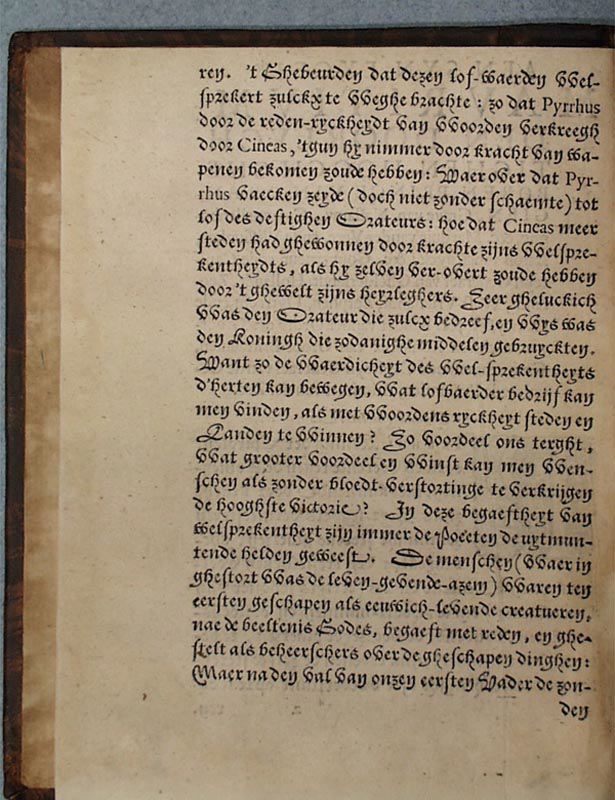 ren. 't Ghebeurden dat dezen lof-waerden VVel-
sprekert zulckx te VVeghe brachte : zo dat Pyrrhus
door de reden-ryckheydt van VVoorden verkreegh
door Cineas, 'tgun hy nimmer door kracht van wa-
penen bekomen zoude hebben : Waer over dat Pyr-
rhus vaecken zeyde (doch niet zonder schaemte) tot
lof des deftighen Orateurs : hoe dat Cineas meer
steden had ghewonnen door krachte zijns VVelspre-
kentheydts, als hy zelven ver-overt zoude hebben
door 't ghewelt zijns heyrleghers. Zeer gheluckich
VVas den Orateur die zulcx bedreef, en VVys was
den Koningh die zodanighe middelen gebruyckten.
Want zo de VVaerdicheyt des VVel-sprekentheyts
d'herten kan bewegen, VVat lofbaerder bedrijf kan
men vinden, als met VVoordens ryckheyt steden en
Landen te VVinnen? Zo voordeel ons terght,
VVat grooter voordeel en VVinst kan men VVen-
schen als zonder bloedt-verstortinge te verkrijgen
de hooghste victorie? In deze begaeftheyt van
welsprekentheyt zijn immer de Poëeten de uytmun-
tende helden geweest. De menschen (VVaer in
ghestort VVas de leven-gevende-azem) VVaren ten
eersten geschapen als eeuwich-levende creatueren,
nae de beeltenis Godes, begaeft met reden, en ghe-
stelt als beheerschers over de gheschapen dinghen :
Maer na den val van onzen eersten Vader de zon-
den